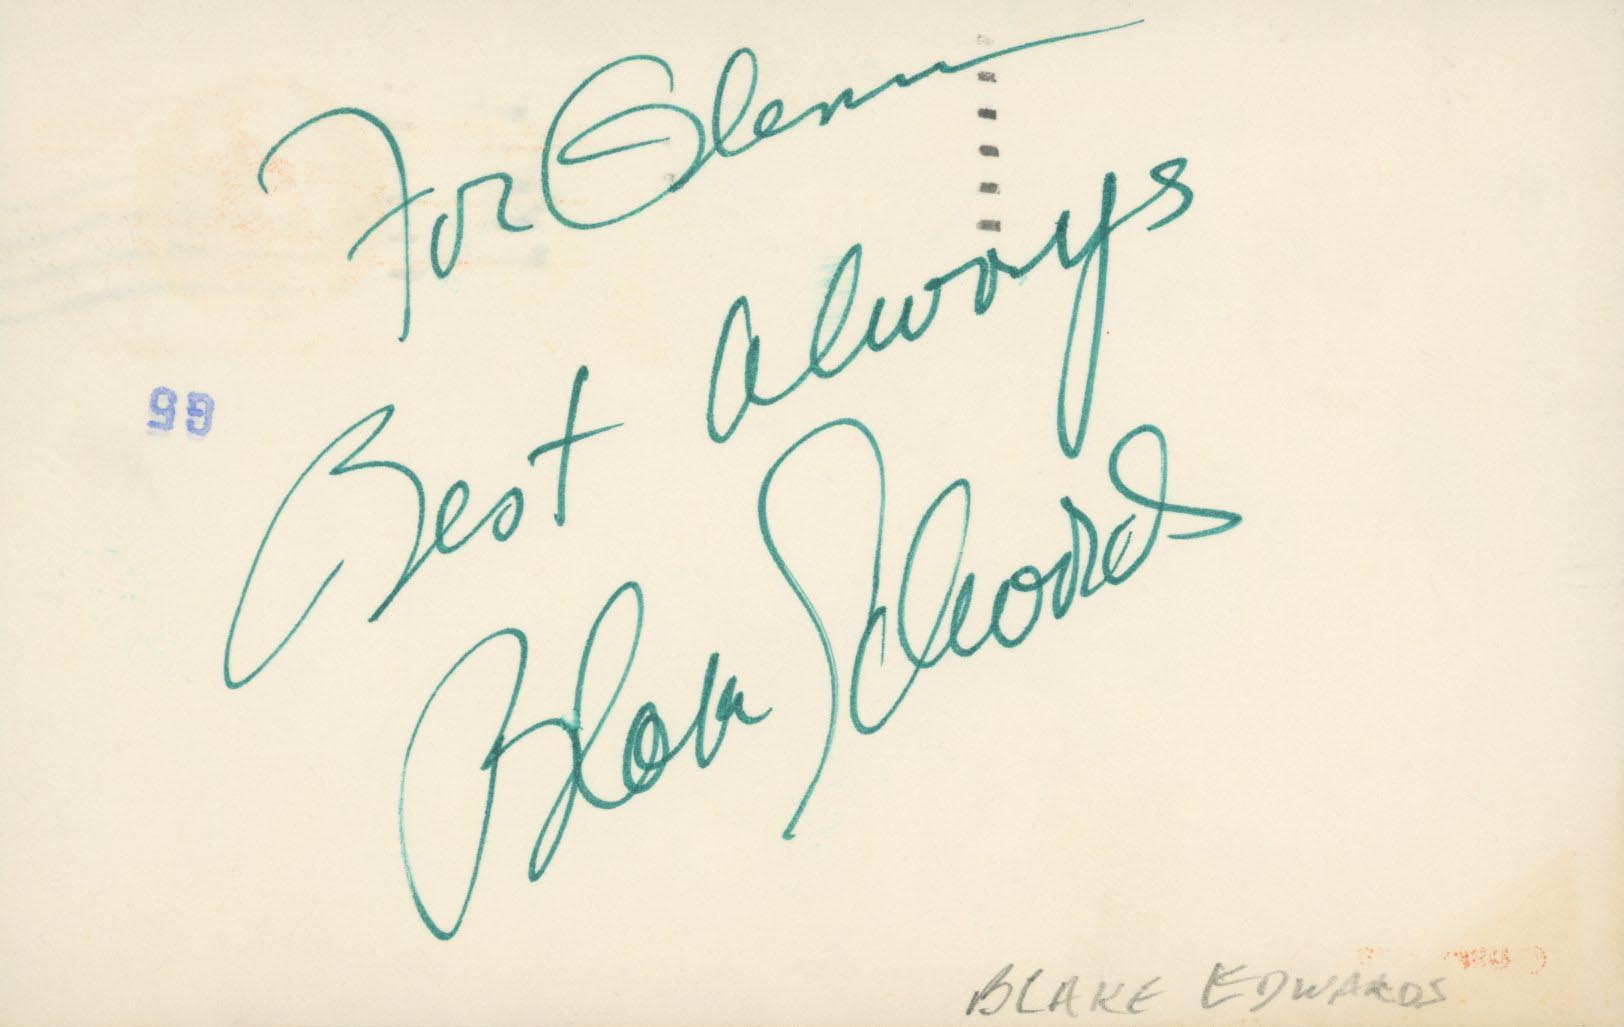 For Glenn
Best always
Blake Edwards
BLAKE EDWARDS